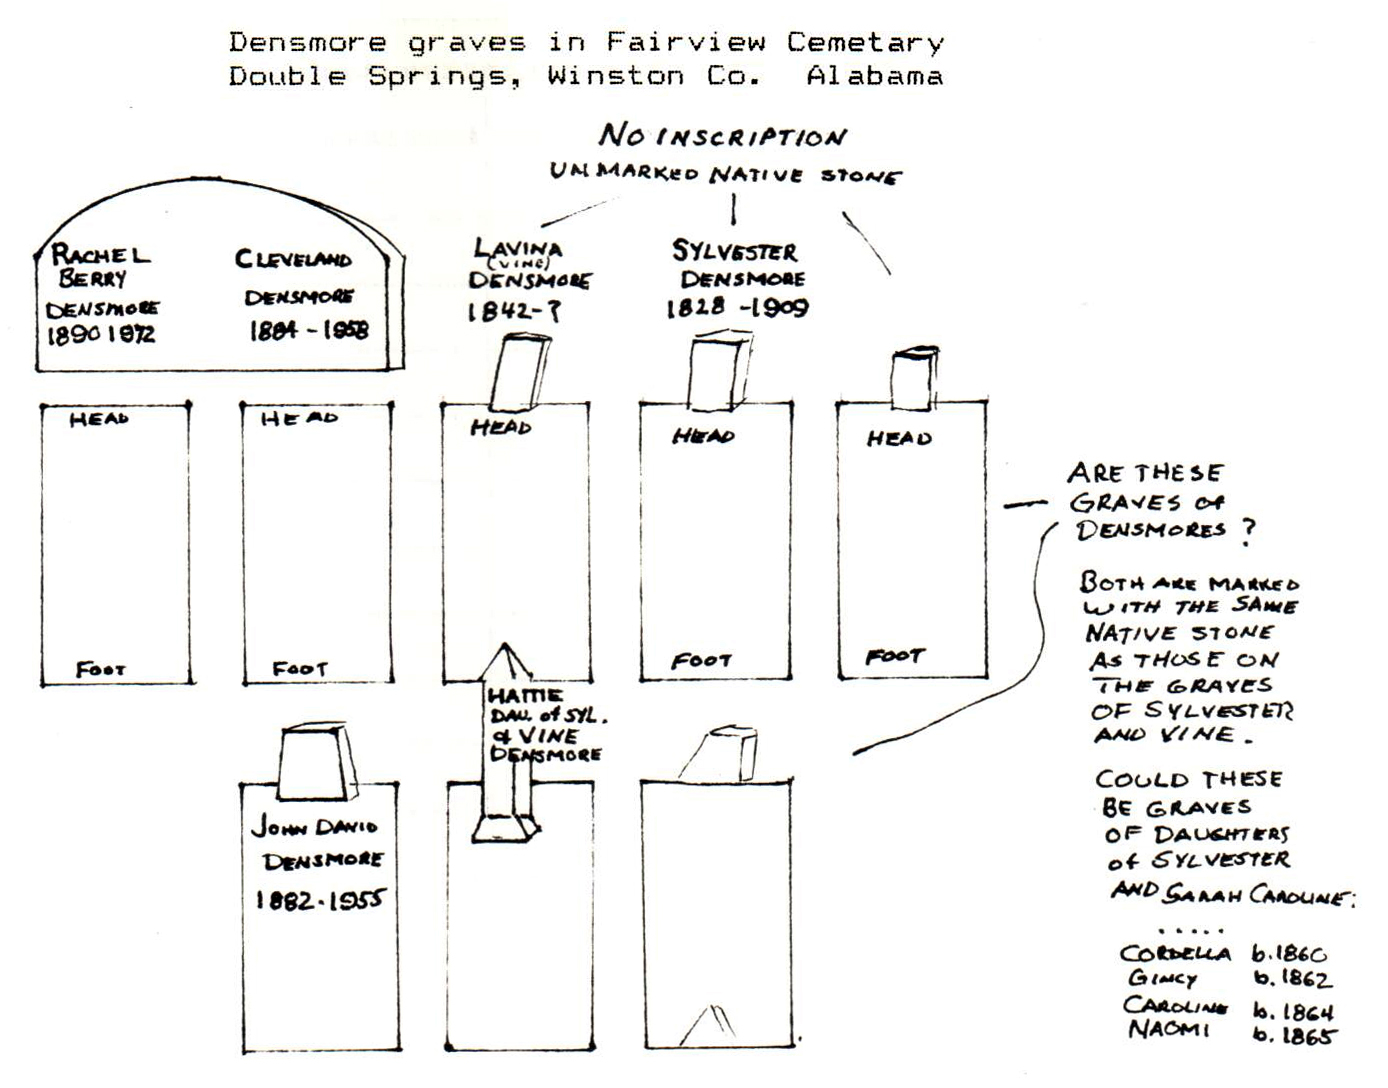 Densmore graves in Fairview Cemetary
Double Springs, Winston Co. Alabama
NO INSCRIPTION
UNMARKED NATIVE STONE
RACHEL
BERRY
DENSMORE
1890 1972
CLEVELAND
DENSMORE
1884 - 1958
LAVINA
(VINE)
DENSMORE
1842-?
SYLVESTER
DENSMORE
1828 -1909
HEAD
HEAD
HEAD
HEAD
HEAD
FOOT
FOOT
FOOT
FOOT
HATTIE
DAU. of SYL.
& VINE
DENSMORE
JOHN DAVID
DENSMORE
1882-1955
ARE THESE
GRAVES of
DENSMORES?
BOTH ARE MARKED
WITH THE SAME
NATIVE STONE
AS THOSE ON
THE GRAVES
OF SYLVESTER
AND VINE.
COULD THESE
BE GRAVES
OF DAUGHTERS
of SYLVESTER
AND SARAH CAROLINE:
.....
CORDELLA b.1860
GINCY b.1862
CAROLINE b.1864
NAOMI b.1865